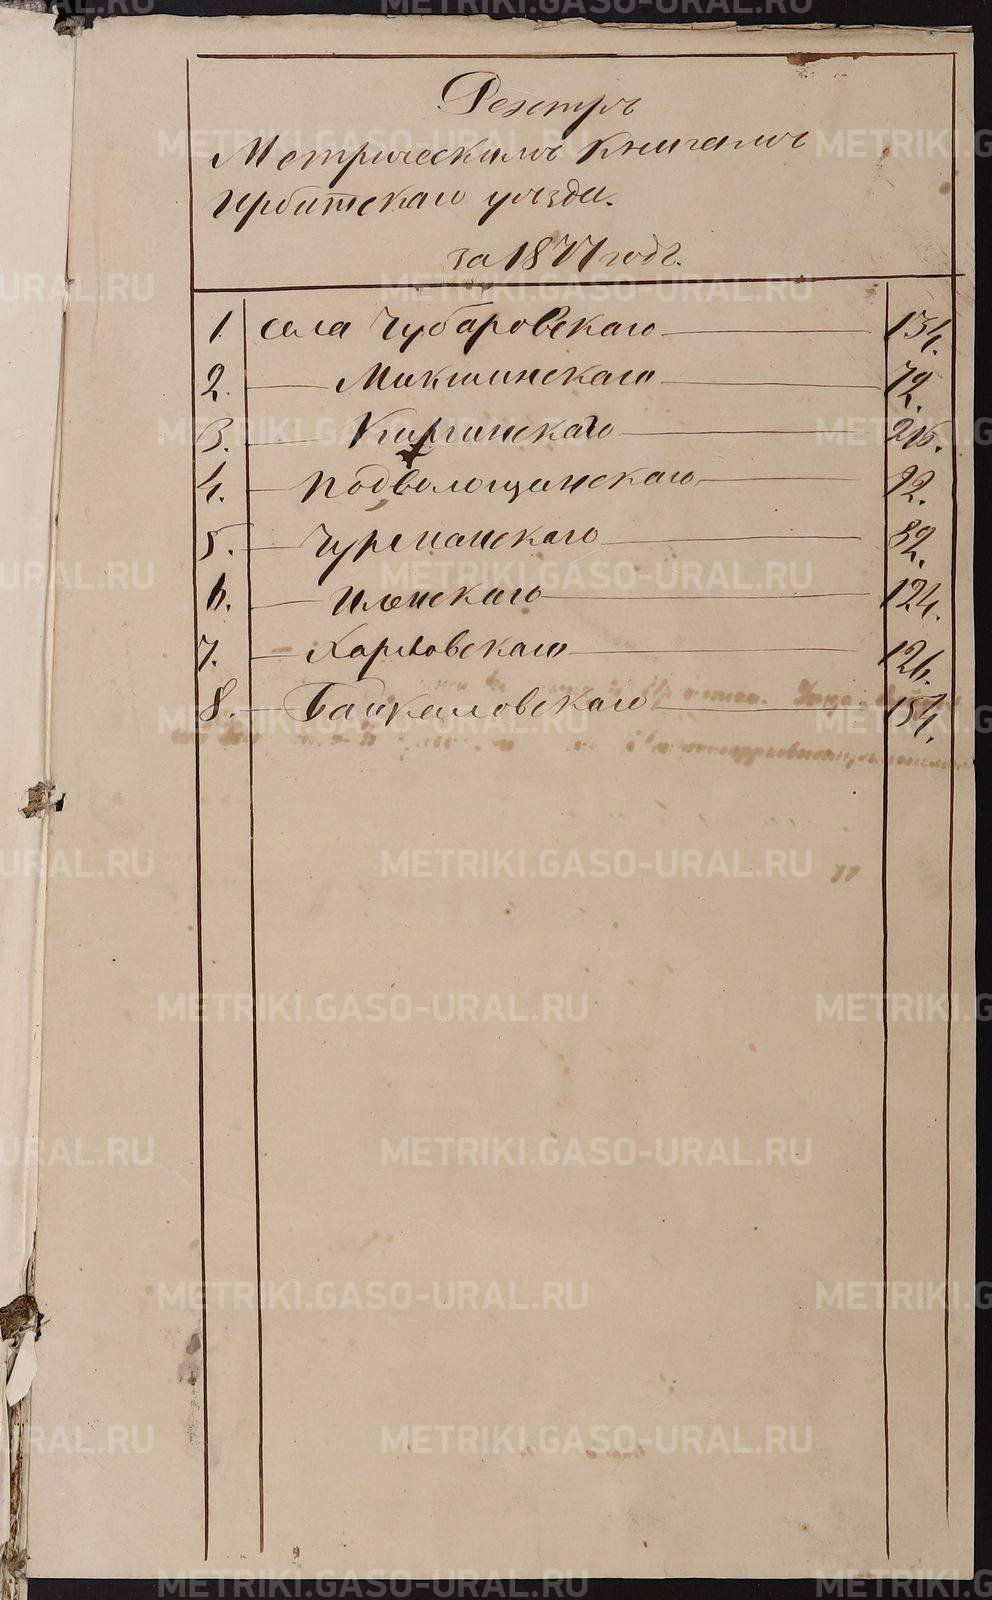 Реэстръ
Метрическимъ книгамъ
Ирбитскаго уѣзда.
за 1877 годъ.
1. села Чубаровскаго 134.
2. Микшинскаго 72.
3. Киргинскаго 216.
4. Подволошинскаго 92.
5. Чурманскаго 82.
6. Иленскаго 124.
7. Харловскаго 126.
8. Байкаловскаго 154.
METRIKI.GASO-URAL.RU